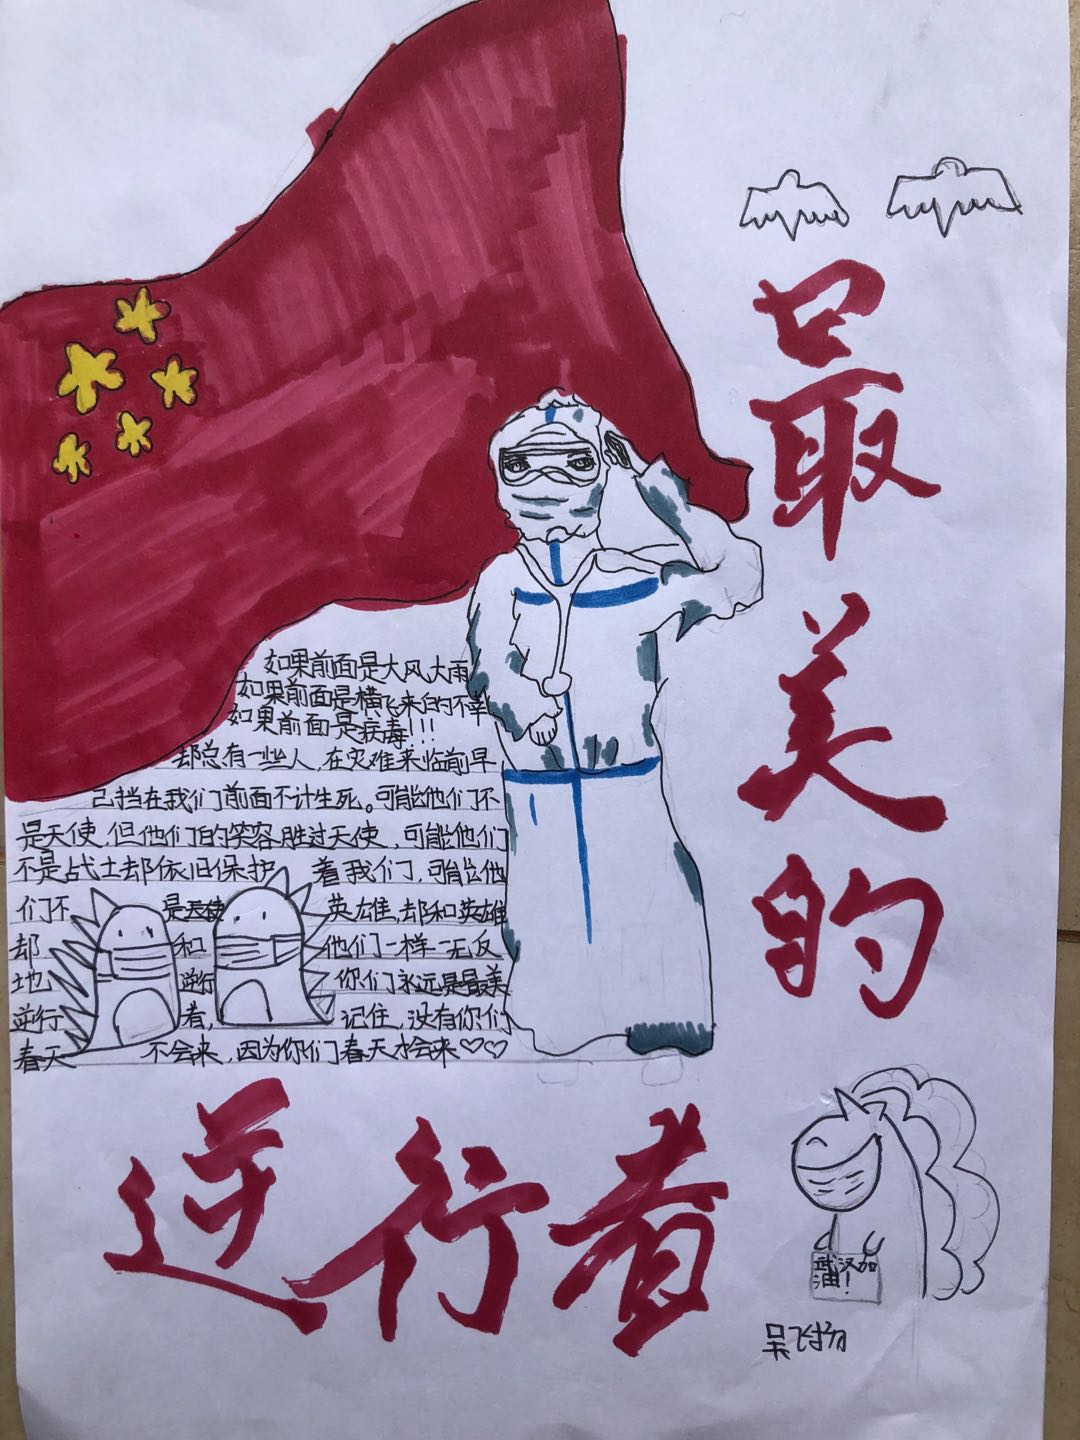 最美的
如果前面是大风大雨
如果前面是横飞来的不幸
如果前面是病毒!!!
却总有一些人,在灾难来临前早
己挡在我们前面不计生死。可能他们不
是天使,但他们的笑容胜过天使,可能他们
不是战士却依旧保护着我们,可能他
们不是天使英雄,却和英雄
却和他们一样一无反
地逆行你们永远是最美
逆行者,记住,没有你们
春天不会来,因为你们春天才会来♡♡
逆行者
武汉加
油!
吴飞扬